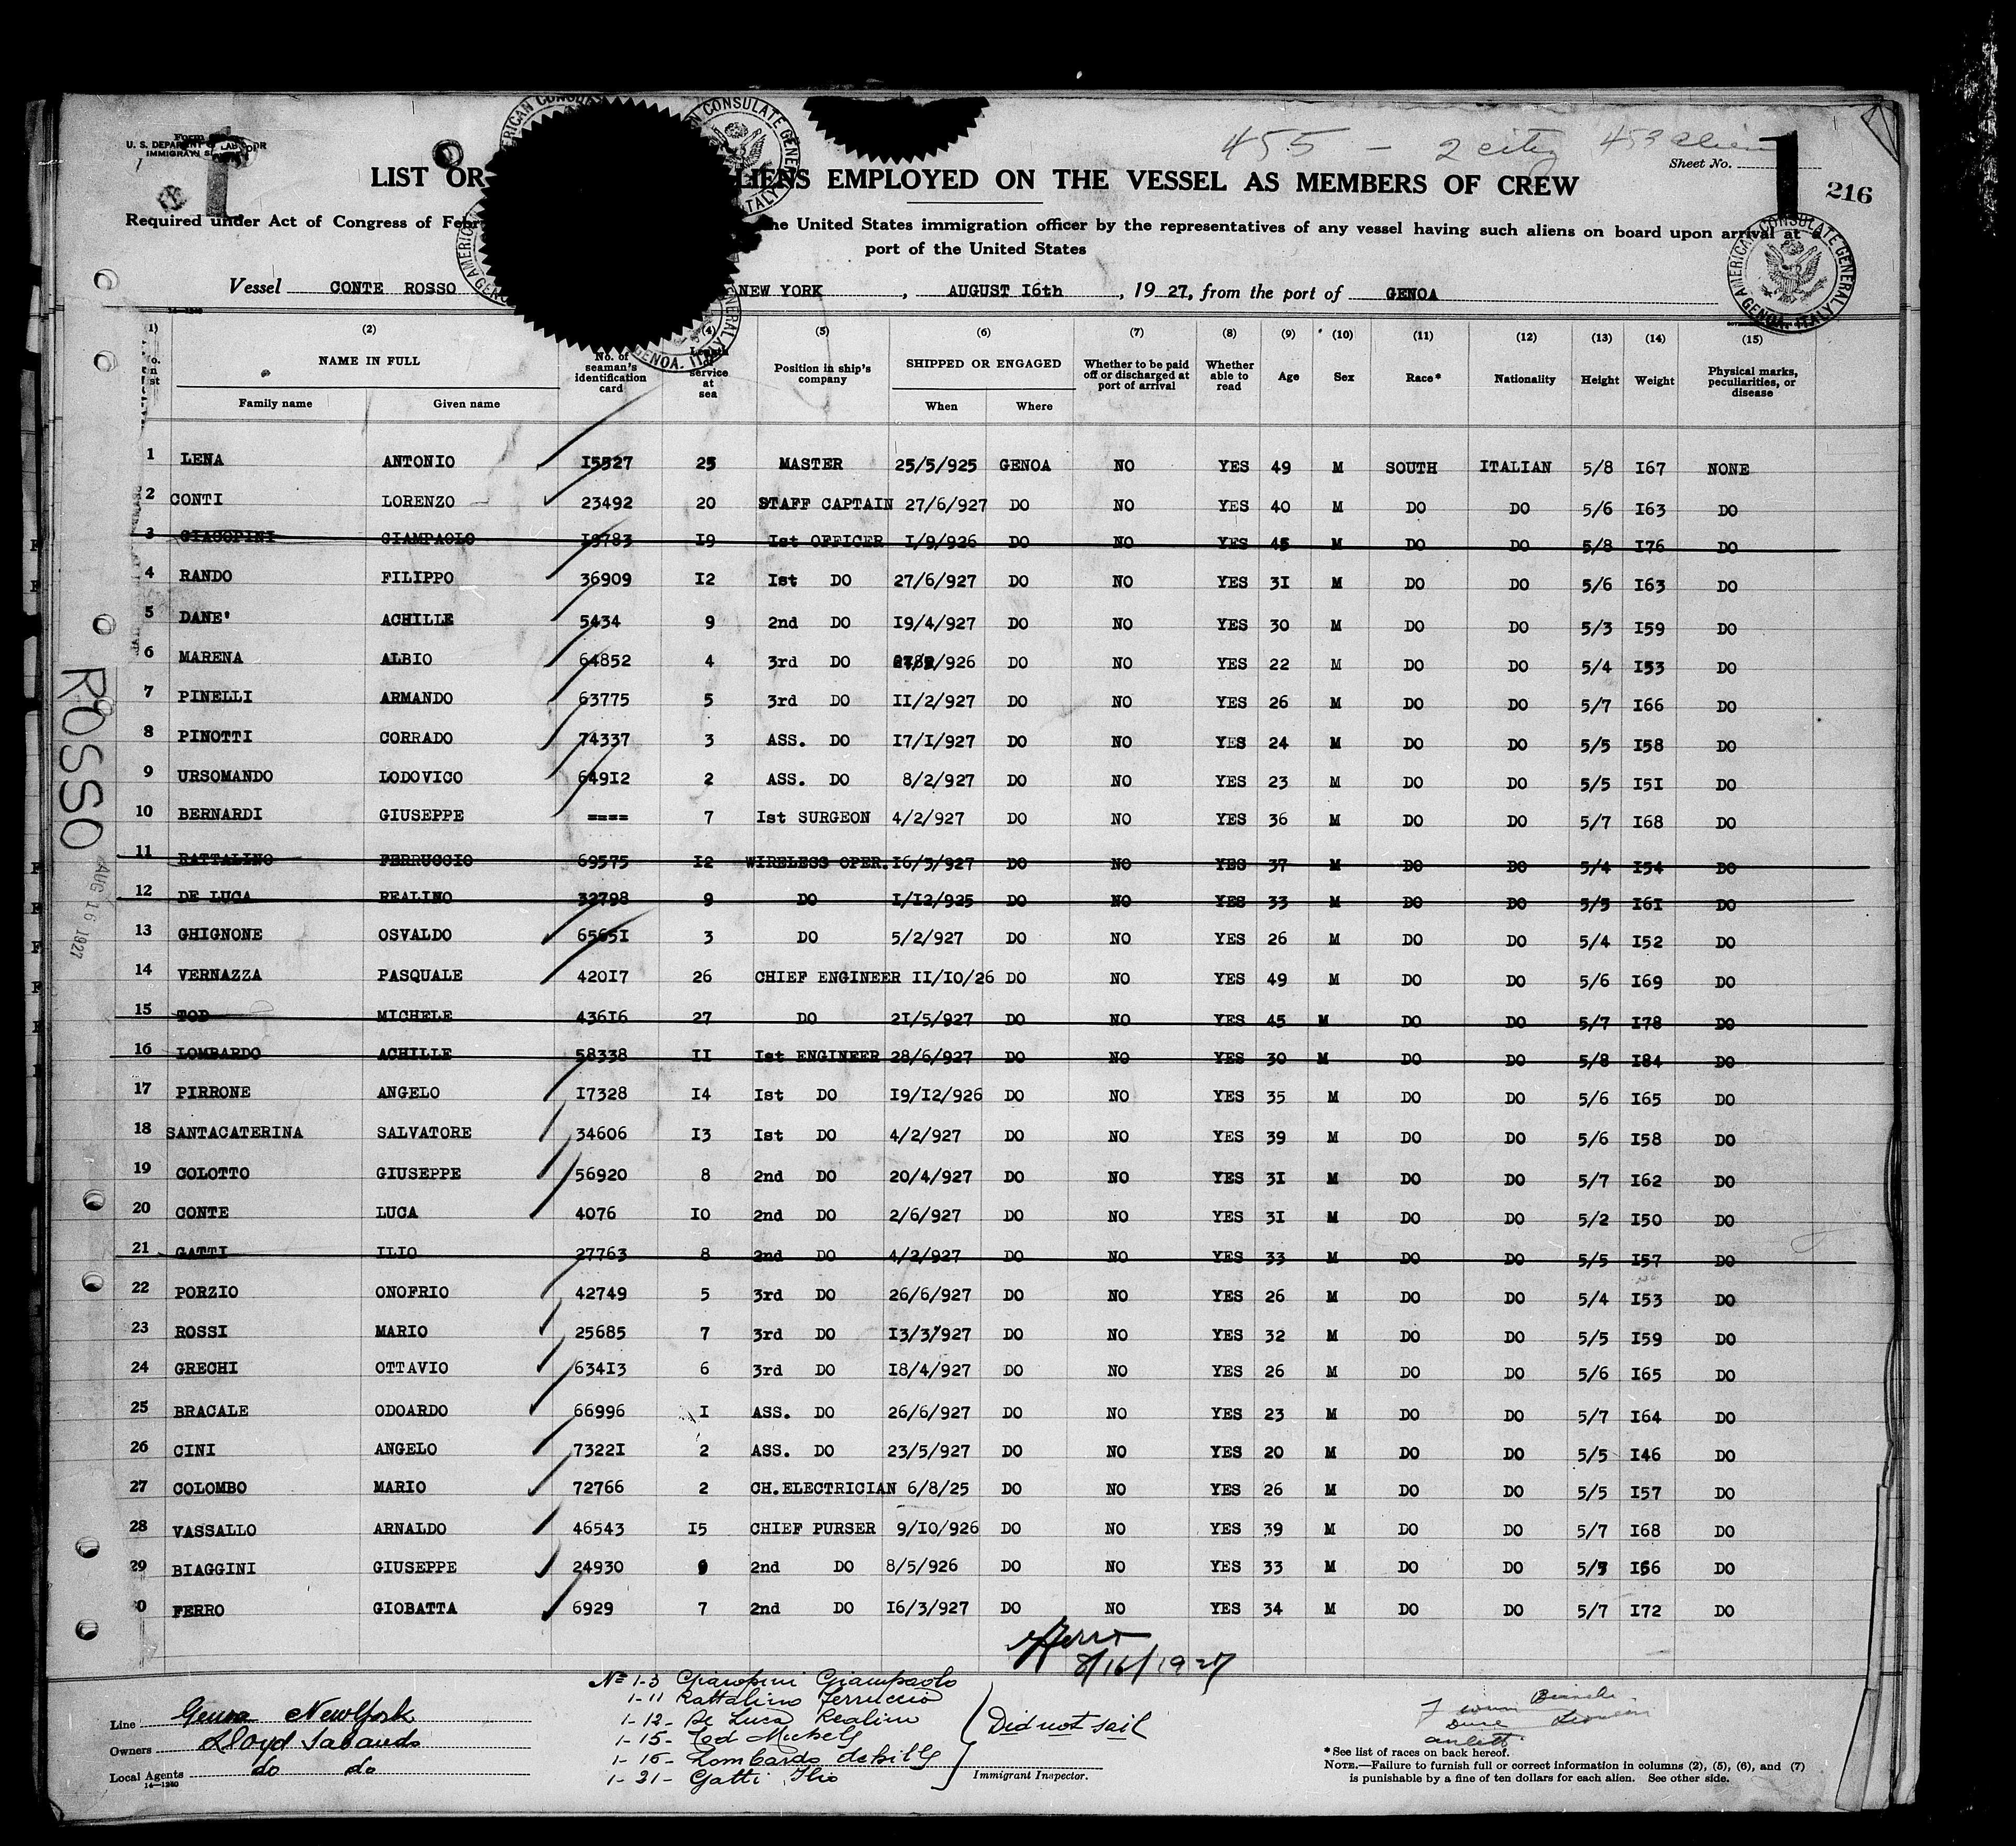 U. S. DEPARTMENT OF LABOR
455 - 2 city 453 alien
Sheet No. 1
LIST OR ALIENS EMPLOYED ON THE VESSEL AS MEMBERS OF CREW
216
Required under Act of Congress of he United States immigration officer by the representatives of any vessel having such aliens on board upon arrival at a
port of the United States
Vessel CONTE ROSSO NEW YORK, AUGUST I6th, 19 27, from the port of GENOA
AMERICAN CONSULATE GENERAL GENOA, ITALY
(2) (4) (5) (6) (7) (8) (9) (10) (11) (12) (13) (14) (15)
NAME IN FULL Family name Given name No. of seaman's identification card Length of service at sea Position in ship's company SHIPPED OR ENGAGED When Where Whether to be paid off or discharged at port of arrival Whether able to read Age Sex Race* Nationality Height Weight Physical marks, peculiarities, or disease
1 LENA ANTONIO I5527 25 MASTER 25/5/925 GENOA NO YES 49 M SOUTH ITALIAN 5/8 I67 NONE
2 CONTI LORENZO 23492 20 STAFF CAPTAIN 27/6/927 DO NO YES 40 M DO DO 5/6 I63 DO
3 GIACOPINI GIAMPAOLO I9783 I9 Ist OFFICER I/9/926 DO NO YES 45 M DO DO 5/8 I76 DO
4 RANDO FILIPPO 36909 I2 Ist DO 27/6/927 DO NO YES 3I M DO DO 5/6 I63 DO
5 DANE' ACHILLE 5434 9 2nd DO I9/4/927 DO NO YES 30 M DO DO 5/3 I59 DO
6 MARENA ALBIO 64852 4 3rd DO /926 DO NO YES 22 M DO DO 5/4 I53 DO
7 PINELLI ARMANDO 63775 5 3rd DO II/2/927 DO NO YES 26 M DO DO 5/7 I66 DO
8 PINOTTI CORRADO 74337 3 ASS. DO I7/I/927 DO NO YES 24 M DO DO 5/5 I58 DO
9 URSOMANDO LODOVICO 649I2 2 ASS. DO 8/2/927 DO NO YES 23 M DO DO 5/5 I5I DO
10 BERNARDI GIUSEPPE ==== 7 Ist SURGEON 4/2/927 DO NO YES 36 M DO DO 5/7 I68 DO
11 RATTALINO FERRUCCIO 69575 I2 WIRELESS OPER. I6/3/927 DO NO YES 37 M DO DO 5/4 I54 DO
12 DE LUCA REALINO 32798 9 DO I/I2/925 DO NO YES 33 M DO DO 5/5 I6I DO
13 GHIGNONE OSVALDO 6565I 3 DO 5/2/927 DO NO YES 26 M DO DO 5/4 I52 DO
14 VERNAZZA PASQUALE 420I7 26 CHIEF ENGINEER II/I0/26 DO NO YES 49 M DO DO 5/6 I69 DO
15 TOD MICHELE 436I6 27 DO 2I/5/927 DO NO YES 45 M DO DO 5/7 I78 DO
16 LOMBARDO ACHILLE 58338 II Ist ENGINEER 28/6/927 DO NO YES 30 M DO DO 5/8 I84 DO
17 PIRRONE ANGELO I7328 I4 Ist DO I9/I2/926 DO NO YES 35 M DO DO 5/6 I65 DO
18 SANTACATERINA SALVATORE 34606 I3 Ist DO 4/2/927 DO NO YES 39 M DO DO 5/6 I58 DO
19 COLOTTO GIUSEPPE 56920 8 2nd DO 20/4/927 DO NO YES 3I M DO DO 5/7 I62 DO
20 CONTE LUCA 4076 I0 2nd DO 2/6/927 DO NO YES 3I M DO DO 5/2 I50 DO
21 GATTI ILIO 27763 8 2nd DO 4/2/927 DO NO YES 33 M DO DO 5/5 I57 DO
22 PORZIO ONOFRIO 42749 5 3rd DO 26/6/927 DO NO YES 26 M DO DO 5/4 I53 DO
23 ROSSI MARIO 25685 7 3rd DO I3/3/927 DO NO YES 32 M DO DO 5/5 I59 DO
24 GRECHI OTTAVIO 634I3 6 3rd DO I8/4/927 DO NO YES 26 M DO DO 5/6 I65 DO
25 BRACALE ODOARDO 66996 I ASS. DO 26/6/927 DO NO YES 23 M DO DO 5/7 I64 DO
26 CINI ANGELO 7322I 2 ASS. DO 23/5/927 DO NO YES 20 M DO DO 5/5 I46 DO
27 COLOMBO MARIO 72766 2 CH.ELECTRICIAN 6/8/25 DO NO YES 26 M DO DO 5/5 I57 DO
28 VASSALLO ARNALDO 46543 I5 CHIEF PURSER 9/I0/926 DO NO YES 39 M DO DO 5/7 I68 DO
29 BIAGGINI GIUSEPPE 24930 2nd DO 8/5/926 DO NO YES 33 M DO DO 5/5 I66 DO
0 FERRO GIOBATTA 6929 7 2nd DO I6/3/927 DO NO YES 34 M DO DO 5/7 I72 DO
ROSSO
AUG 16 1927
8/16/1927
Nº 1-3 Giacopini Giampaolo
1-11 Rattalino Ferruccio
1-12- De Luca Realino
1-15- Tod Michele
1-16- Lombardo Achille
1-21- Gatti Ilio
Did not sail
Immigrant Inspector.
Line Genoa NewYork
Owners Lloyd Sabaudo
Local Agents do do
14—1240
*See list of races on back hereof.
NOTE.—Failure to furnish full or correct information in columns (2), (5), (6), and (7)
is punishable by a fine of ten dollars for each alien. See other side.